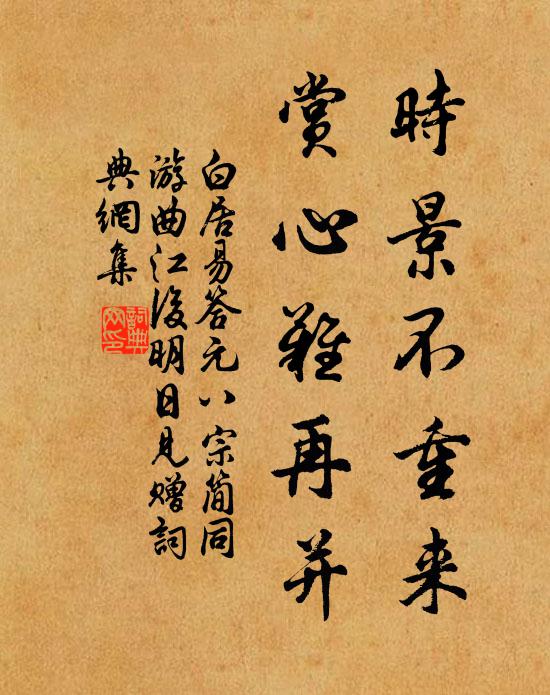 時景不重来
賞心難再并
白居易答元八宗簡同
游曲江後明日見贈詞
典網集
詞典網印